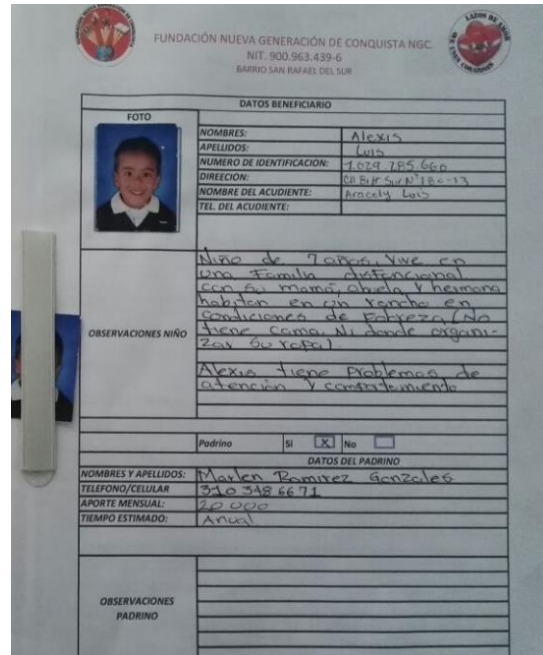 FUNDACIÓN NUEVA GENERACIÓN DE CONQUISTA NGC.
NIT. 900.963.439-6
BARRIO SAN RAFAEL DEL SUR
DATOS BENEFICIARIO
FOTO
NOMBRES: Alexis
APELLIDOS: Luis
NUMERO DE IDENTIFICACIÓN: 1.029.285.660
DIREECION: Sur Nº 18c-13
NOMBRE DEL ACUDIENTE: Aracely Luis
TEL. DEL ACUDIENTE:
OBSERVACIONES NIÑO
Niño de 7 años, Vive en
una Familia disfuncional
con su mamá, abuela y hermana
habitan en un rancho en
condiciones de Pobreza (No
tiene cama, Ni donde organi-
zar su ropa).
Alexis tiene Problemas de
atención y comportamiento
Padrino SI X No
DATOS DEL PADRINO
NOMBRES Y APELLIDOS: Marlen Ramirez Gonzales
TELEFONO/CELULAR 310 348 6671
APORTE MENSUAL: 20.000
TIEMPO ESTIMADO: Anual
OBSERVACIONES
PADRINO